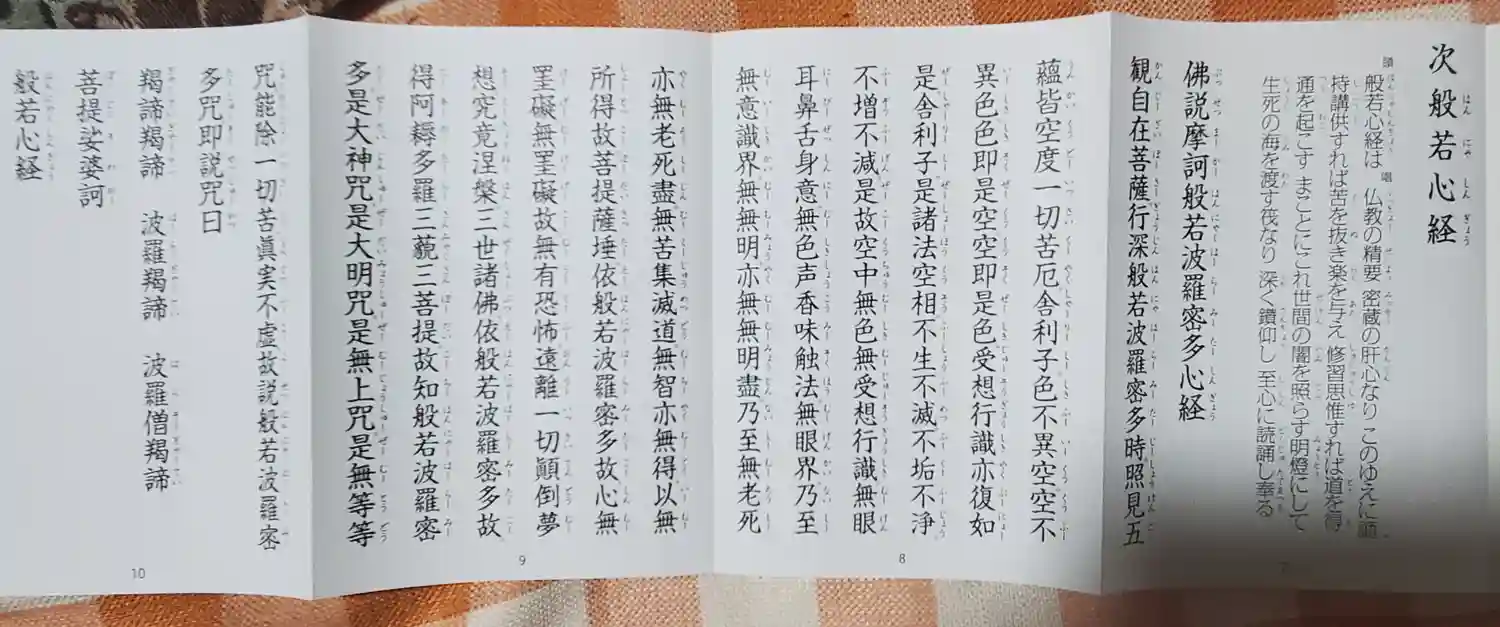 次般若心経
般若心経は 仏教の精要 密蔵の肝心なり このゆえに誦
持講供すれば苦を抜き楽を与え 修習思惟すれば道を得
通を起こす まことにこれ世間の闇を照らす明燈にして
生死の海を渡す筏なり 深く鑽仰し 至心に読誦し奉る
佛説摩訶般若波羅密多心経
観自在菩薩行深般若波羅密多時照見五
蘊皆空度一切苦厄舎利子色不異空空不
異色色即是空空即是色受想行識亦復如
是舎利子是諸法空相不生不滅不垢不浄
不増不減是故空中無色無受想行識無眼
耳鼻舌身意無色声香味触法無眼界乃至
無意識界無無明亦無無明盡乃至無老死
亦無老死盡無苦集滅道無智亦無得以無
所得故菩提薩埵依般若波羅密多故心無
罣礙無罣礙故無有恐怖遠離一切顛倒夢
想究竟涅槃三世諸佛依般若波羅密多故
得阿耨多羅三藐三菩提故知般若波羅密
多是大神咒是大明咒是無上咒是無等等
咒能除一切苦眞実不虚故説般若波羅密
多咒即説咒曰
羯諦羯諦 波羅羯諦 波羅僧羯諦
菩提娑婆訶
般若心経
8
9
10